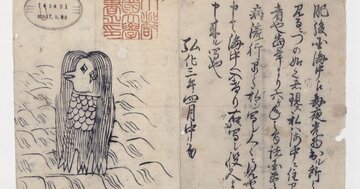 肥後国海中え毎夜光物出ル所
見るニづの如く者現ス私ハ海中ニ住
者也当年より六ヶ年之間諸国豊
病流行早々私シ写シ人々ニ見
申て海中へ入けり右写シ役人
申来ル写也
弘化三年四月中旬